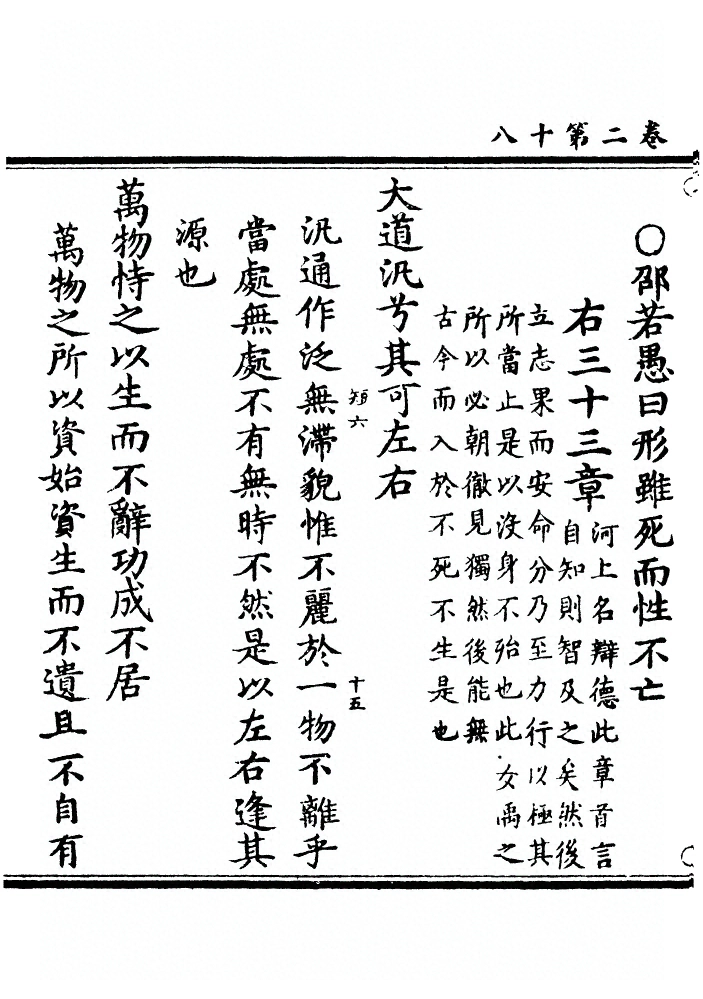 卷二第十八
〇邵若愚曰形雖死而性不亡
右三十三章河上名辯德此章首言
自知則智及之矣然後
立志果而安命分乃至力行以極其
所當止是以没身不殆也此女禹之
所以必朝徹見獨然後能無
古今而入於不死不生是也
大道汎兮其可左右
短六 十五
汎通作泛無滯貌惟不麗於一物不離乎
當處無處不有無時不然是以左右逢其
源也
萬物恃之以生而不辭功成不居
萬物之所以資始資生而不遺且不自有